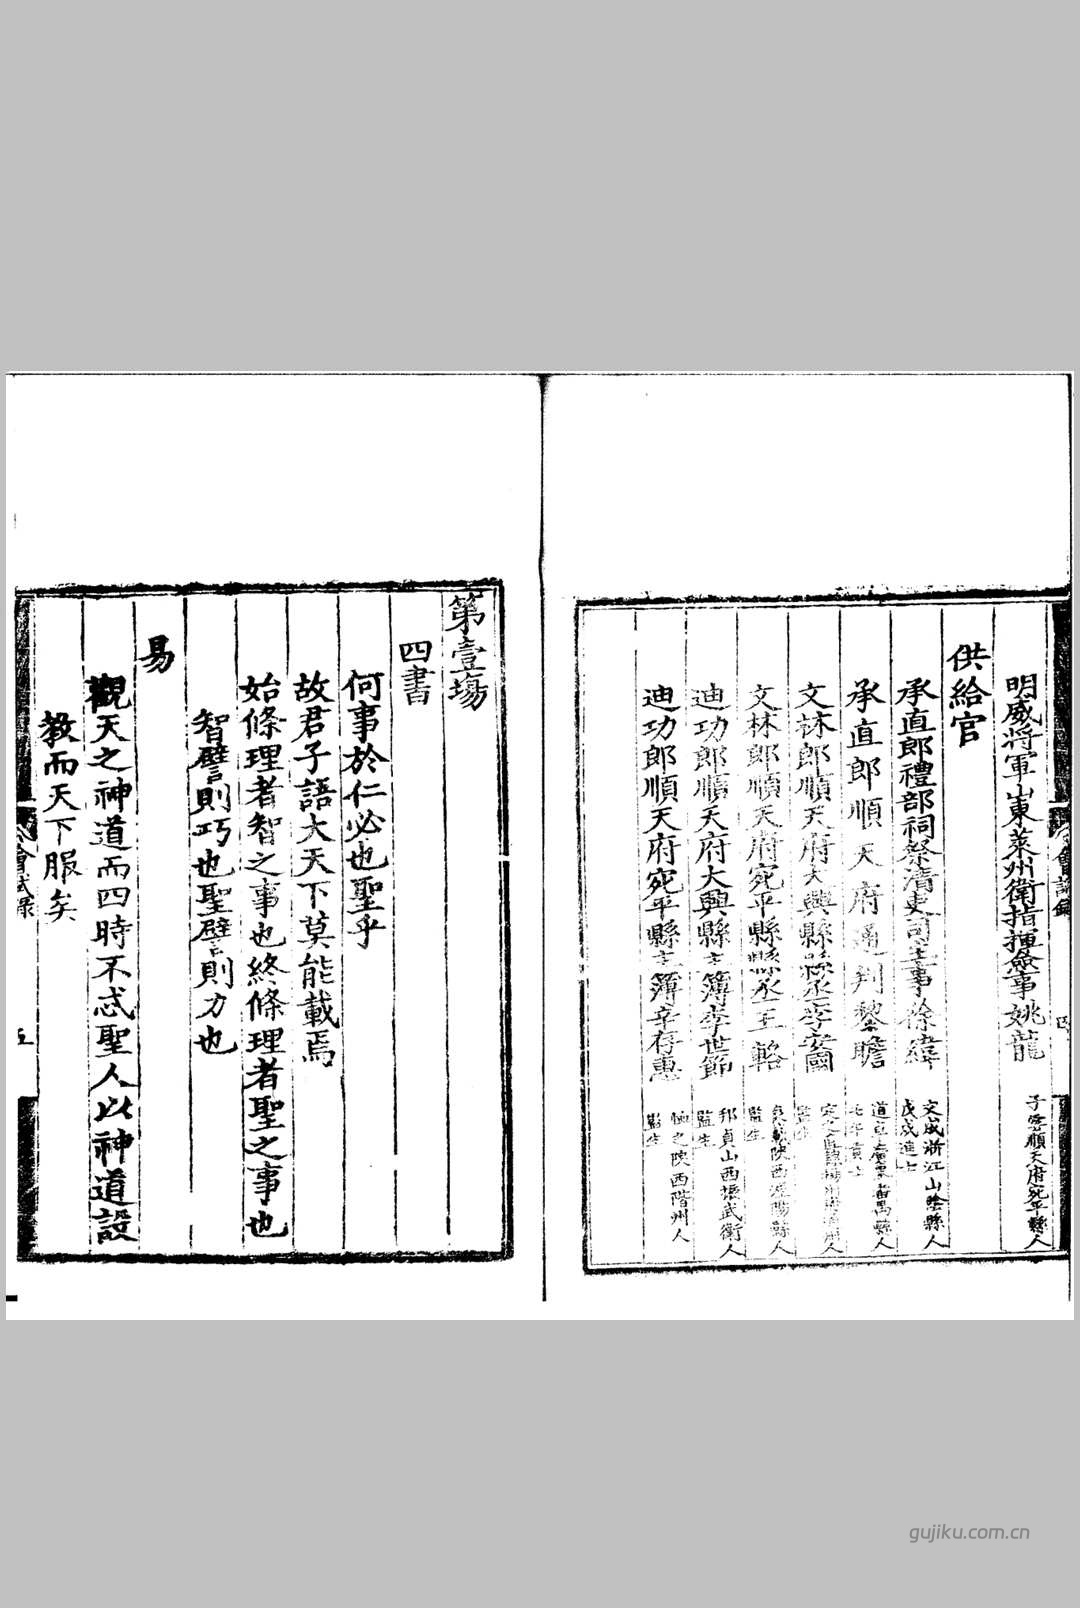 明威將軍山東萊州衛指揮僉事姚龍 子雲順天府宛平縣人
供給官
承直郎禮部祠祭清吏司主事徐緯 文成浙江山陰縣人戊戌進士
承直郎順天府通判黎瞻 道亨廣東番禺縣人 貢士
文林郎順天府大興縣縣丞李安國 監生
文林郎順天府宛平縣縣丞王輅 陝西涇陽縣人監生
迪功郎順天府大興縣主簿李世節 邦貞山西振武衛人監生
迪功郎順天府宛平縣主簿辛存惠 陝西階州人監生
會試錄
四
第壹場
四書
何事於仁必也聖乎
故君子語大天下莫能載焉
始條理者智之事也終條理者聖之事也
智譬則巧也聖譬則力也
易
觀天之神道而四時不忒聖人以神道設
教而天下服矣
會試錄
五
gujiku.com.cn